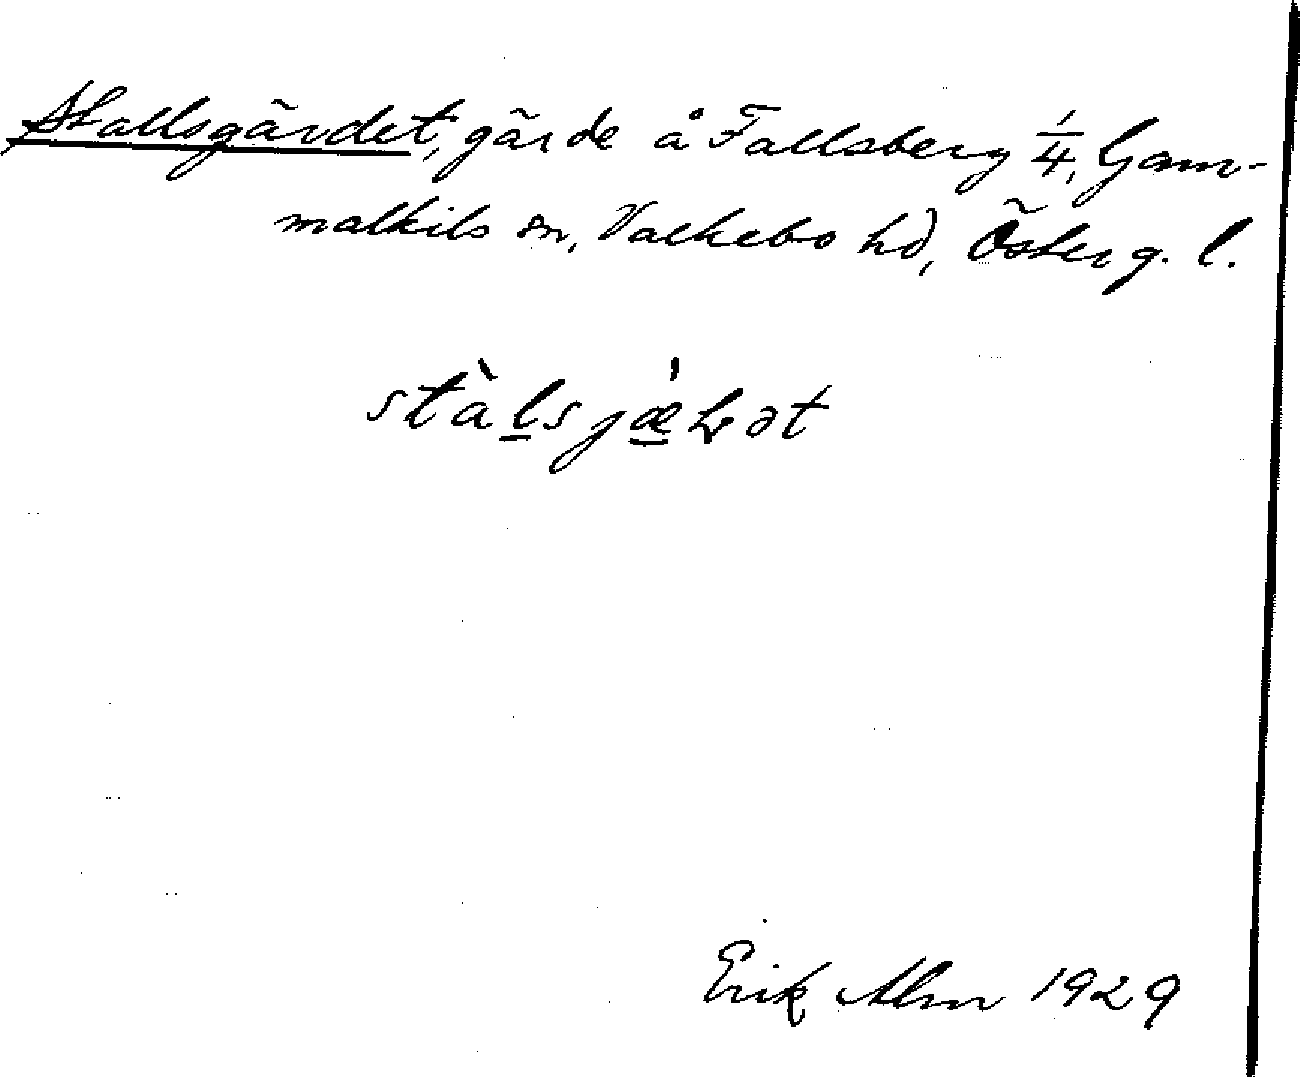 Stallsgärdet, gärde å Fallsberg 1/4, Gam-
malkils sn, Valkebo hd, Österg. l.
Erik Alm 1929